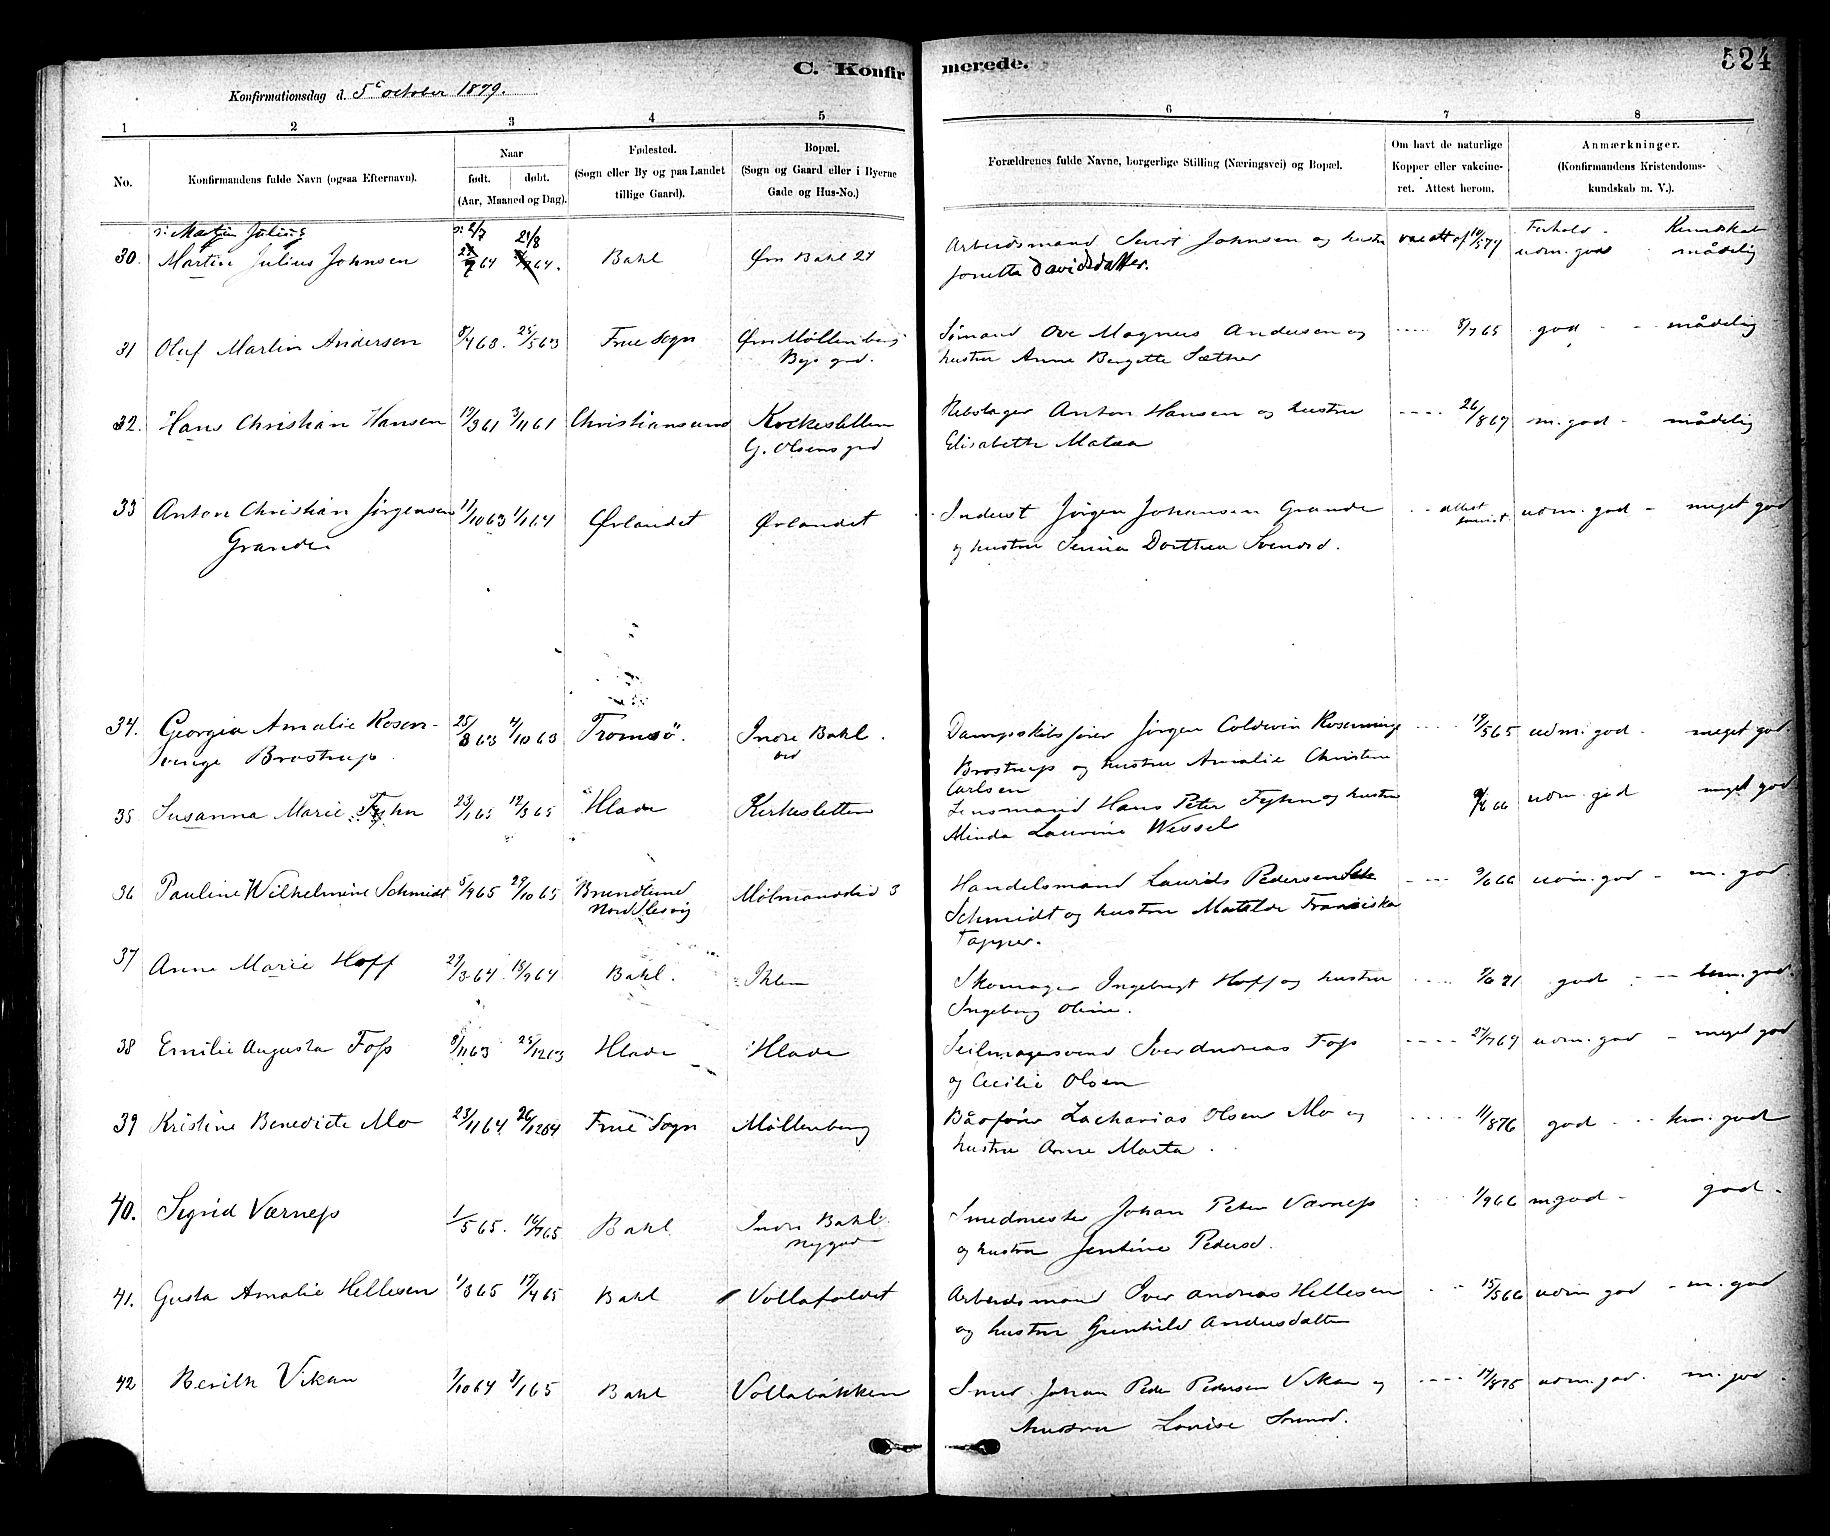 C. Konfirmerede.
524
Konfirmationsdag d. 5te october 1879.
1 2 3 4 5 6 7 8
No.
Konfirmandens fulde Navn (ogsaa Efternavn).
Naar
født. døbt.
(Aar, Maaned og Dag).
Fødested.
(Sogn eller By og paa Landet
tillige Gaard).
Bopæl.
(Sogn og Gaard eller i Byerne
Gade og Hus-No.)
Forældrenes fulde Navne, borgerlige Stilling (Næringsvei) og Bopæl.
Om havt de naturlige
Kopper eller vakcine-
ret. Attest herom.
Anmærkninger.
(Konfirmandens Kristendoms-
kundskab m. V.).
Forhold - Kundskab
30. Martin Julius Johnsen Bakl Øvr Bakl 24 Arbeidsmand Sivert Johnsen og hustru udm. god mådelig
Jonetta Davidsdatter.
31 Oluf Martin Andersen 8/4 63. 25/5 63 Frue Sogn Øvr Møllenberg Sømand Ove Magnus Andersen og 8/7 65 god - mådelig
hustru Anne Bergitte Sæther
32. Hans Christian Hansen 19/3 61 3/11 61 Christiansund Rebslager Anton Hansen og hustru 26/8 67 m. god - mådelig
G. Olsens grd Elisabeth
33 Anton Christian Jørgensen 11/10 63 1/1 64 Ørlandet Ørlandet Inderst Jørgen Johansen Grande attest udm. god - meget god
Grande og hustru Dorthea Svendsd.
34. Georgia Amalie Rosen- 25/8 63 4/10 63 Tromsö. Indre Bakl. Dampskibsfører Jörgen Coldevin Rosenvinge 19/5 65 udm. god - meget god.
vinge Brostrup Brostrup og hustru Amalie Christine
Carlsen
35 Susanna Marie Fyhn 23/1 65 12/3 65 Hlade Kirkesletten Lensmand Hans Peter Fyhn og hustru udm. god meget god
Minda Lauvine Wessel
36 Pauline Wilhelmine Schmidt 5/9 65 29/10 65 Brundlund Mølmansdal 3 Handelsmand Laurids Pedersen 9/6 66 udm. god - m. god
Nord Slesvig Schmidt og hustru Matilde Franciska
Tapper.
37 Anne Marie Hoff 29/3 64 18/9 64 Bakl. Ihlen Skomager Ingebrigt Hoff og hustru god - god.
Ingeborg Oline.
38 Emilie Augusta Foss 8/11 63 25/12 63 Hlade Hlade Seilmagersvend Iver Andreas Foss 27/7 69 udm. god - meget god
og Cecilie Olsen
39 Kristine Benedicte Mo 23/11 64. 26/12 64 Frue Sogn Møllenberg Bådfører Zacharias Olsen Mo og 11/8 76 god - god
hustru Anne Marta.
40. Sigrid Værness 1/5 65. 16/7 65 Bakl Indre Bakl. Smedmester Johan Peter Værness 1/9 66 m god - god -
Nygård og hustru Jentine Pedersd.
41. Gusta Amalie Hellesen 1/3 65 17/4 65 Bakl Vollafaldet Arbeidsmand Iver Andreas Hellesen 15/5 66 udm god - m. god
og hustru Gunhild Andersdatter
42 Berith Vikan 7/10 64 3/1 65 Bakl Vollabakken Smed Johan Peder Pedersen Vikan og 17/8 75 udm. god. m. god.
hustru Louise